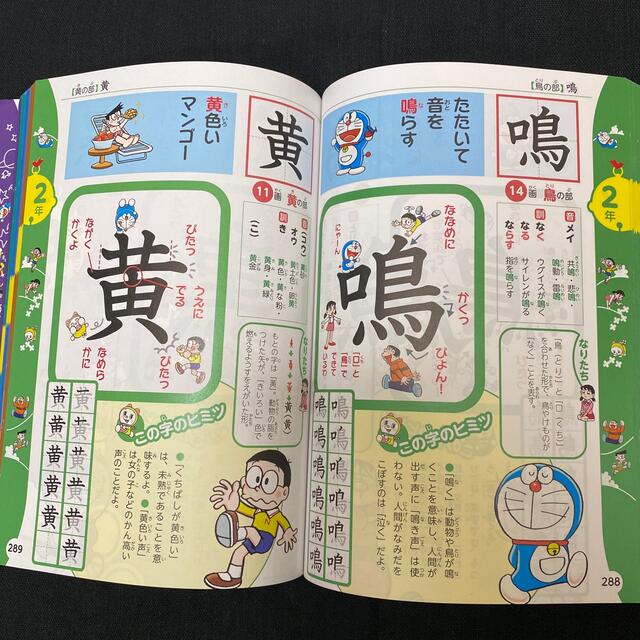 【鳥の部】鳴
鳴
たたいて
音を
鳴らす
2年
14画 鳥の部
音 メイ
訓 なく
なる
ならす
共鳴・悲鳴
鳴動・雷鳴
ウグイスが鳴く
サイレンが鳴る
指を鳴らす
ななめに
にゃーん
かくっ
ぴょん！
「口」と
「鳥」で
できて
いるわ
鳴
なりたち
「鳥（とり）」と「口（くち）」
を合わせた形で、鳥やけものが
「なく」ことを表す。
この字のヒミツ
●「鳴く」は動物や鳥が鳴
くことを意味し、人間が
出す声に「鳴き声」は使
わない。人間がなみだを
こぼすのは「泣く」だよ。
鳴 鳴
鳴 鳴
鳴 鳴
鳴 鳴
鳴 鳴
鳴 鳴
288
【黄の部】黄
黄
黄色い
マンゴー
2年
11画 黄の部
音 （コウ）
オウ
訓 き
（こ）
黄土色・卵黄
黄色・黄な粉・
黄身・黄緑
黄金
ぴたっ
うえに
でる
ながく
かくよ
ぴたっ
なめら
かに
黄
なりたち
もとの字は「黃」。動物の脂を
つけた矢が、「きいろい」色で
燃えるようすをえがいた形。
黃（黄）
この字のヒミツ
●「くちばしが黄色い」
は、未熟であることを意
味するよ。●「黄色い声」
は女の子などのかん高い
声のことだよ。
黄 黄
黄 黄
黄 黄
黄 黄
黄 黄
黄
289